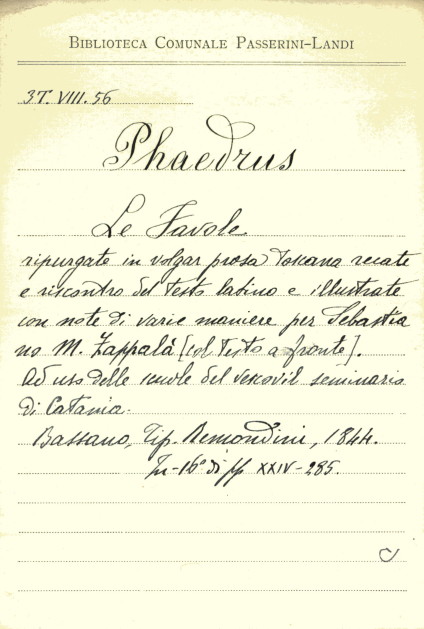 BIBLIOTECA COMUNALE PASSERINI-LANDI
37. VIII. 56
Phaedrus
Le Favole
ripurgate in volgar prosa toscana recate
e riscontro del testo latino e illustrate
con note di varie maniere per Sebastia
no M. Zappalà [col testo a fronte].
Ad uso delle scuole del vescovil seminario
di Catania.
Bassano, Tip. Remondini, 1844.
In-16° di pp XXIV-285.